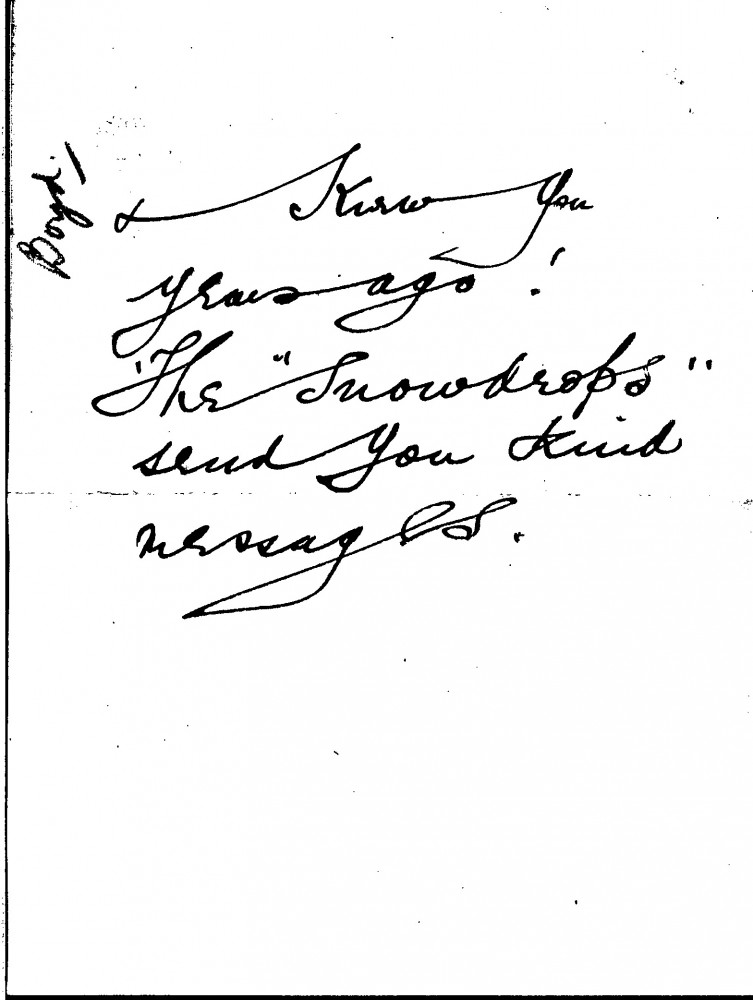 Boyd,
& Knew You
years ago!
"The "Snowdrops"
send You Kind
messages.